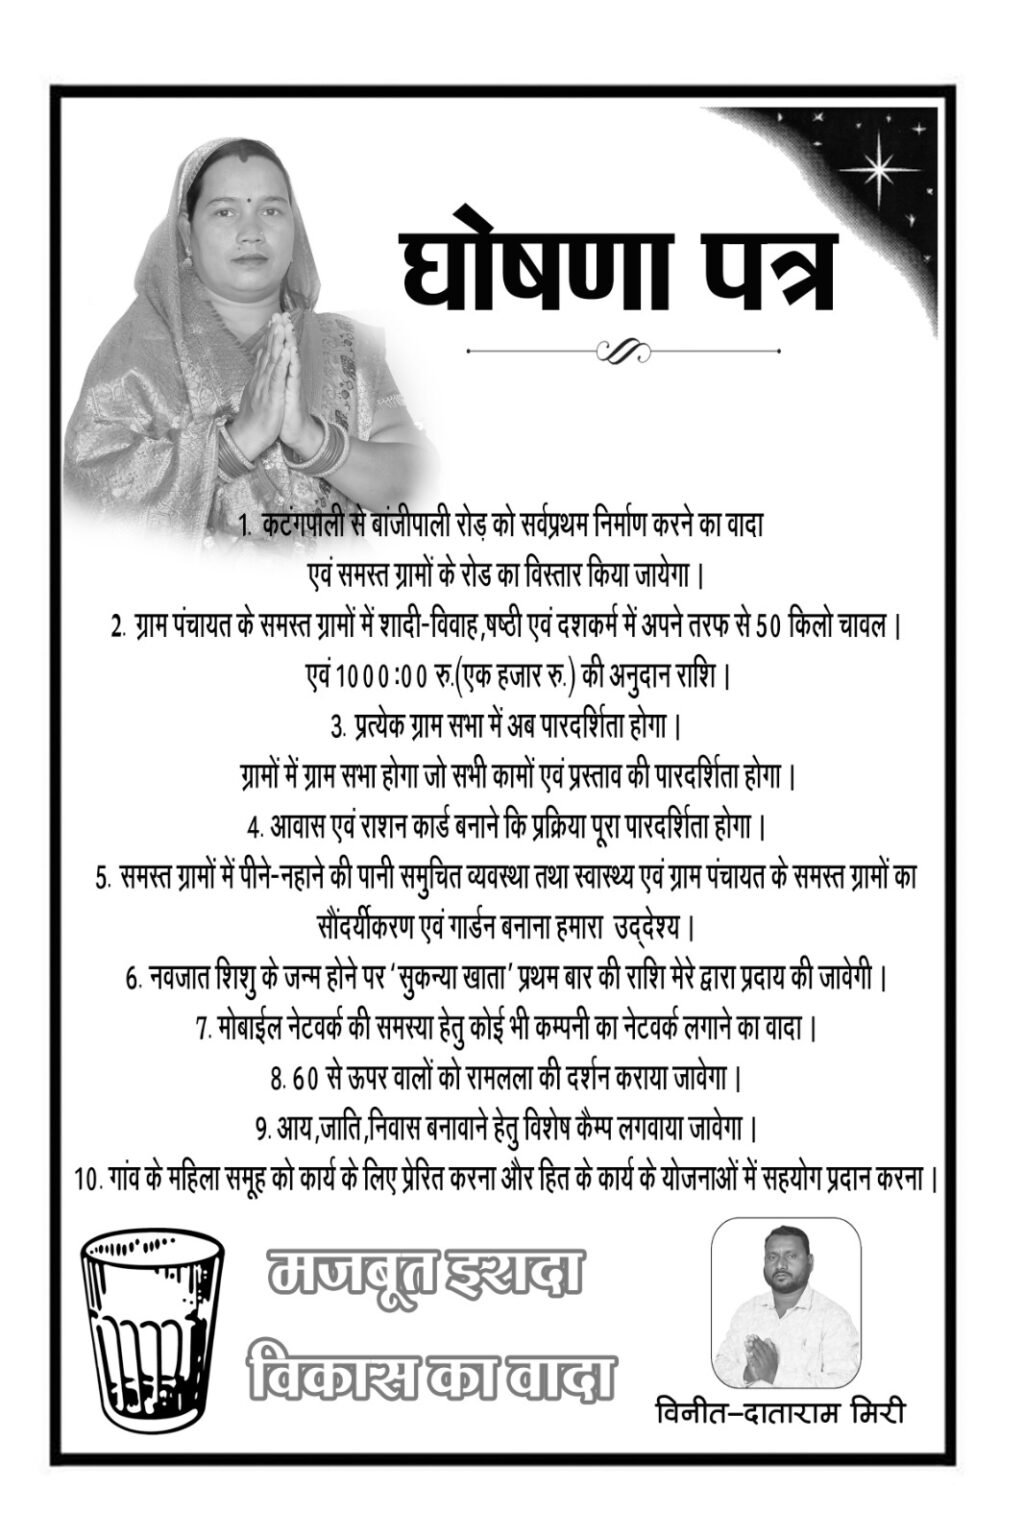 घोषणा पत्र
1. कटंगपाली से बांजीपाली रोड़ को सर्वप्रथम निर्माण करने का वादा
एवं समस्त ग्रामों के रोड का विस्तार किया जायेगा।
2. ग्राम पंचायत के समस्त ग्रामों में शादी-विवाह,षष्ठी एवं दशकर्म में अपने तरफ से 50 किलो चावल।
एवं 1000:00 रु.(एक हजार रु.) की अनुदान राशि।
3. प्रत्येक ग्राम सभा में अब पारदर्शिता होगा।
ग्रामों में ग्राम सभा होगा जो सभी कामों एवं प्रस्ताव की पारदर्शिता होगा।
4. आवास एवं राशन कार्ड बनाने कि प्रक्रिया पूरा पारदर्शिता होगा।
5. समस्त ग्रामों में पीने-नहाने की पानी समुचित व्यवस्था तथा स्वास्थ्य एवं ग्राम पंचायत के समस्त ग्रामों का
सौंदर्यीकरण एवं गार्डन बनाना हमारा उद्देश्य।
6. नवजात शिशु के जन्म होने पर 'सुकन्या खाता' प्रथम बार की राशि मेरे द्वारा प्रदाय की जावेगी।
7. मोबाईल नेटवर्क की समस्या हेतु कोई भी कम्पनी का नेटवर्क लगाने का वादा।
8. 60 से ऊपर वालों को रामलला की दर्शन कराया जावेगा।
9. आय,जाति,निवास बनावाने हेतु विशेष कैम्प लगवाया जावेगा।
10. गांव के महिला समूह को कार्य के लिए प्रेरित करना और हित के कार्य के योजनाओं में सहयोग प्रदान करना।
मजबूत इरादा
विकास का वादा
विनीत-दाताराम मिरी